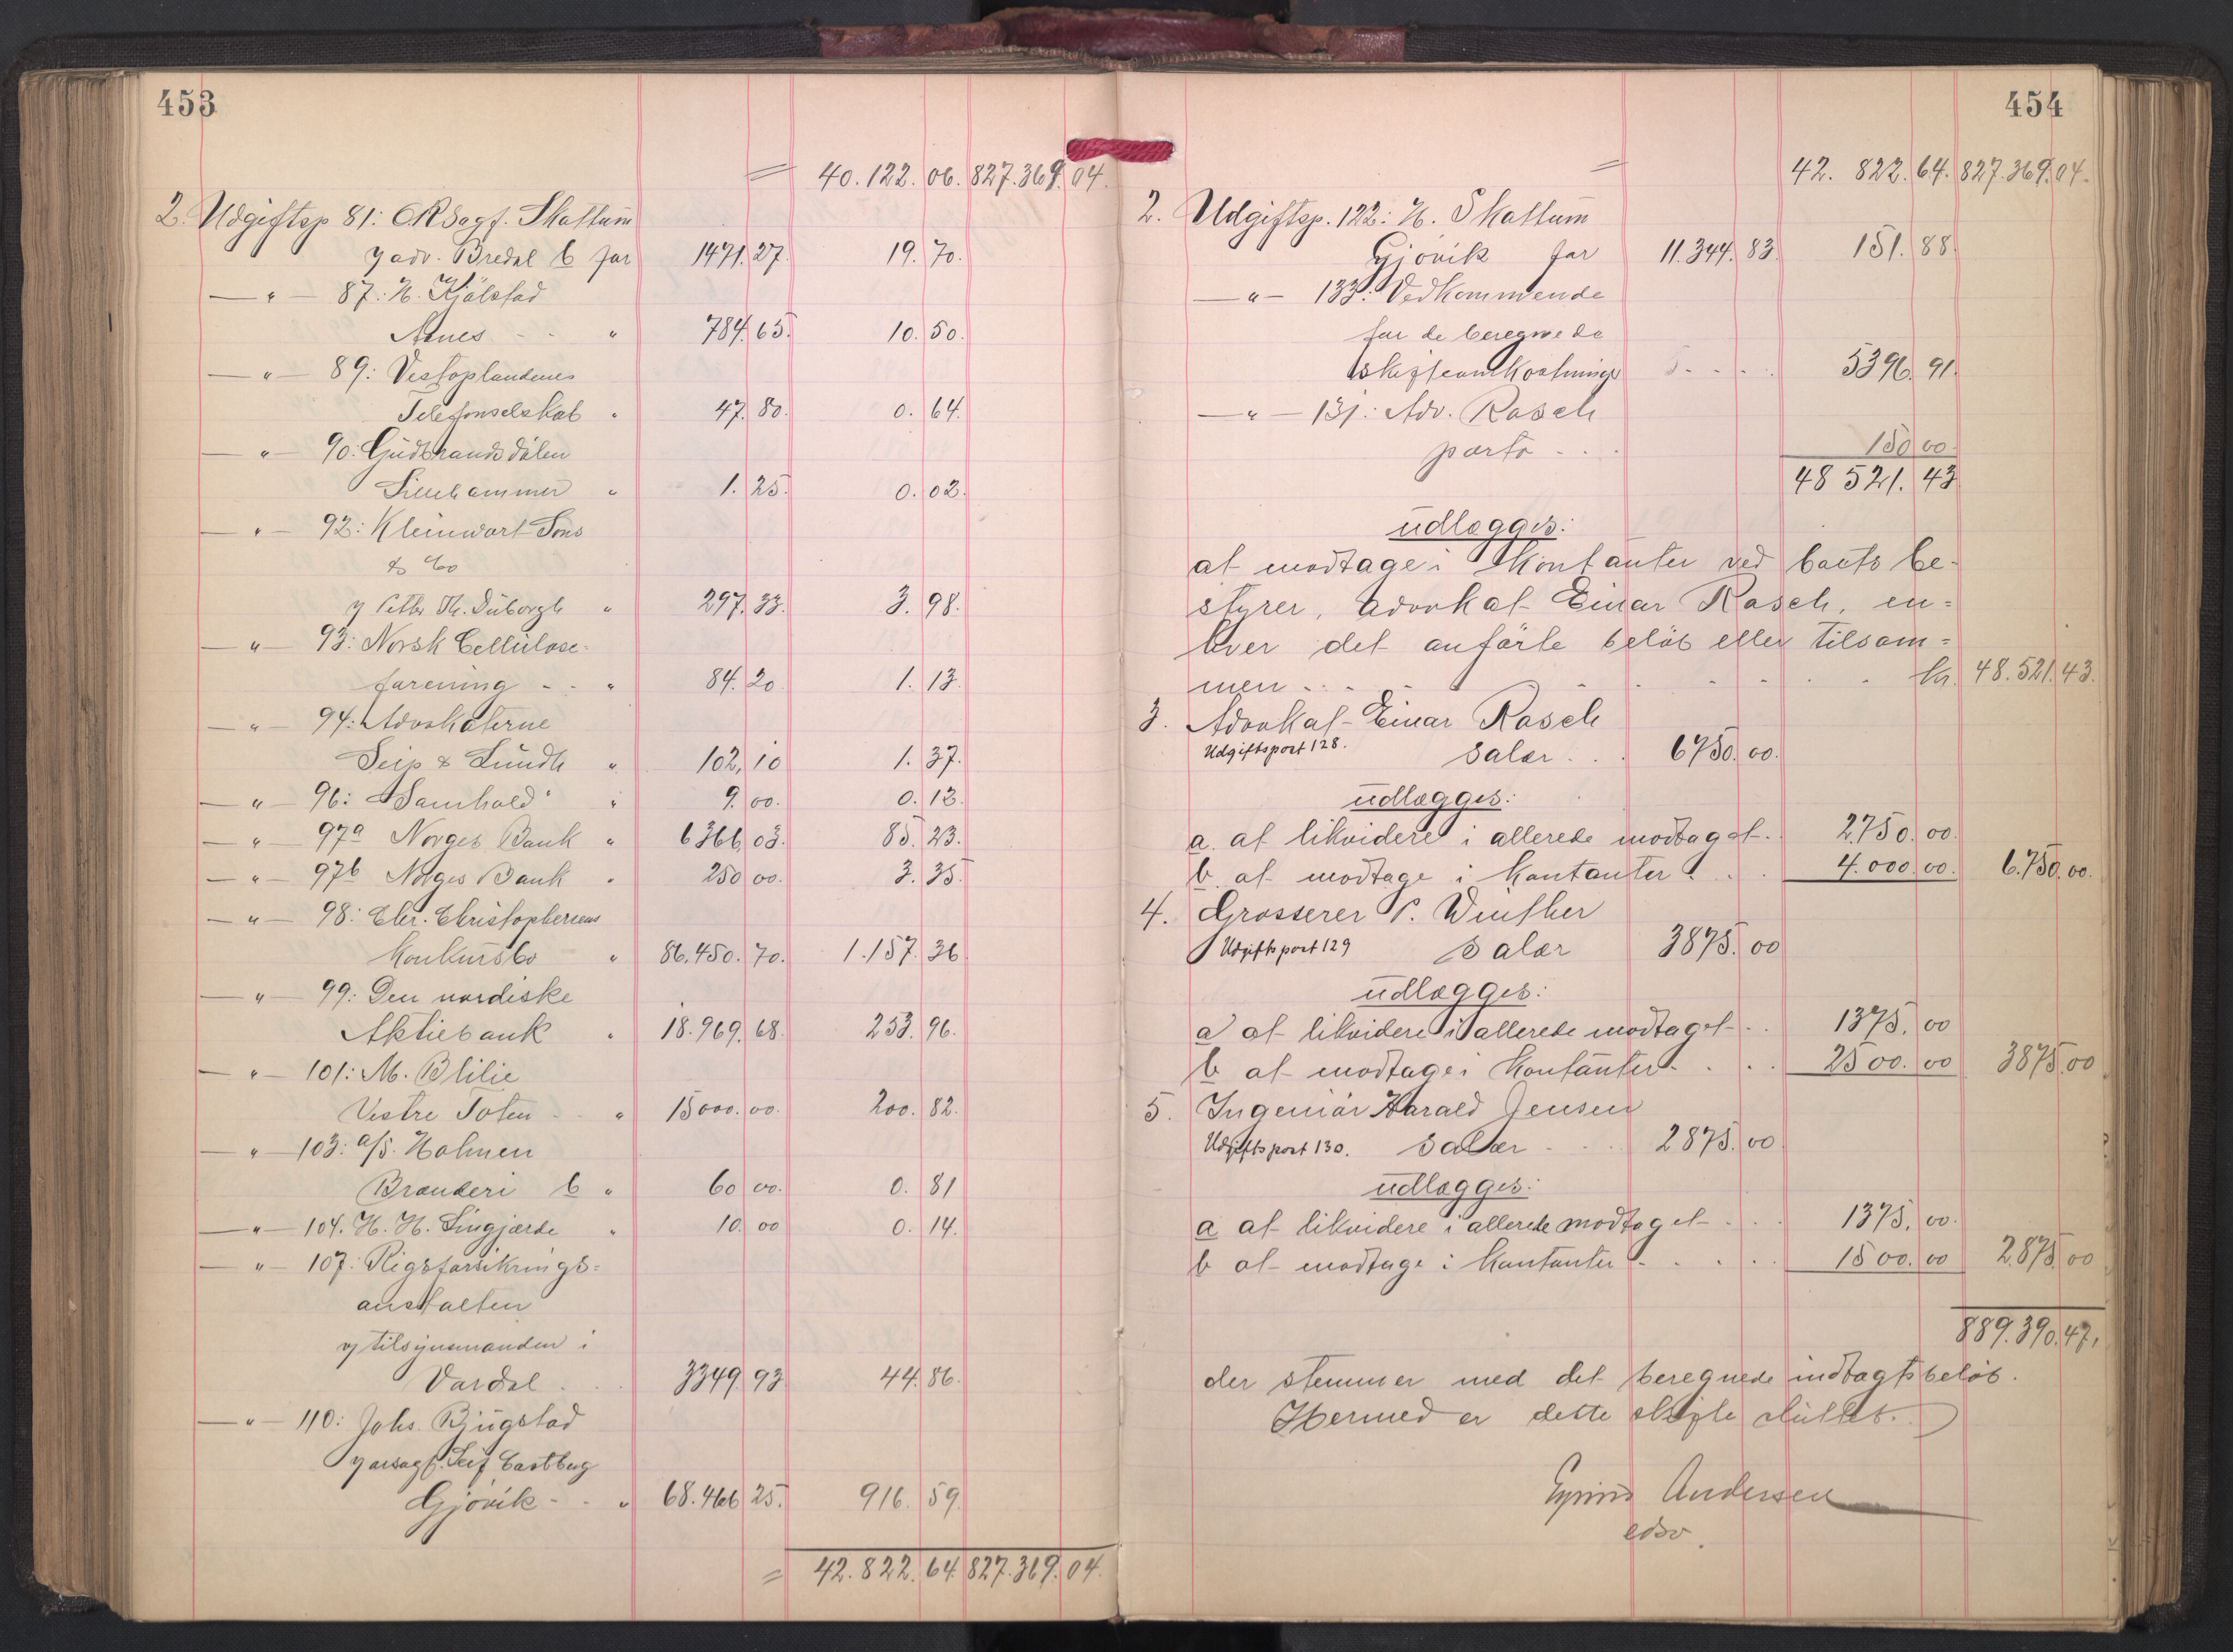 453
= 40.122.06. 827.369.04.
2. Udgiftsp 81: ORsagf. Skattum
v/ adv. Bredal b for 1471.27. 19.70.
— " — 87: H. Kjølstad
Aanes - - " 784.65. 10.50.
— " — 89: Vestoplandenes
Telefonselskab " 47.80. 0.64.
— " — 90: Gudbrandsdølen
Lillehammer " 1.25. 0.02.
— " — 92: Kleinwort Sons
& Co
v/ Peter Th. Duborgh " 297.33. 3.98.
— " — 93: Norsk Cellulose-
forening - - " 84.20 1.13.
— " — 94: Advokaterne
Seip & Lundh " 102,10 1.37.
— " — 96: "Samhold" " 9.00. 0.12.
— " — 97a Norges Bank " 6366.03. 85.23.
— " — 97b Norges Bank " 250 00. 3.35.
— " — 98: Chr. Christophersens
konkursbo " 86.450.70. 1.157.36
— " — 99: Den nordiske
Aktiebank " 18.969.68. 253.96.
— " — 101: M. Blilie
Vestre Toten - - " 15000.00. 200.82.
— " — 103: a/s. Holmen
Brænderi b " 60 00. 0.81
— " — 104. H. H. Lingjærde " 10.00 0.14.
— " — 107: Rigsforsikrings=
anstalten
v/ tilsynsmanden i
Vardal . . . 3349.93 44.86.
— " — 110: Johs. Bjugstad
v/ orsagf. Leif Castberg
Gjøvik - - " 68.466 25. 916.59.
= 42.822.64. 827.369.04.
454
= 42.822.64. 827.369.04.
2. Udgiftsp. 122: H. Skattum
Gjøvik for 11.344.83. 151.88.
— " — 133: Vedkommende
for de beregnede
skifteomkostninger - - - - 5396.91.
— " — 131: Adv. Rasch
porto - - . 150 00.
48 521.43
udlægges:
at modtage i kontanter ved boets be-
styrer, advokat Einar Rasch, en=
hver det anførte beløb eller tilsam=
men - - - - - - - kr. 48.521.43.
3. Advokat Einar Rasch
Udgiftspost 128. Salær . . . 6750.00.
udlægges:
a. at likvidere i allerede modtaget. . 2750.00.
b. at modtage i kontanter . . . 4.000.00. 6.750.00.
4. Grosserer P. Winther
Udgiftspost 129 Salær 3875.00
udlægges:
a at likvidere i allerede modtaget - . . 1375.00
b at modtage i kontanter . . . 2500.00 3875 00
5. Ingeniør Harald Jensen
Udgiftspost 130. Salær - . . 2875.00
udlægges:
a at likvidere i allerede modtaget - . . 1375.00.
b at modtage i kontanter . . . . 1500.00 2.875.00
889.390.47.
der stemmer med det beregnede indtægtsbeløb.
Hermed er dette skifte sluttet.
Eyvind Andersen
edsv.